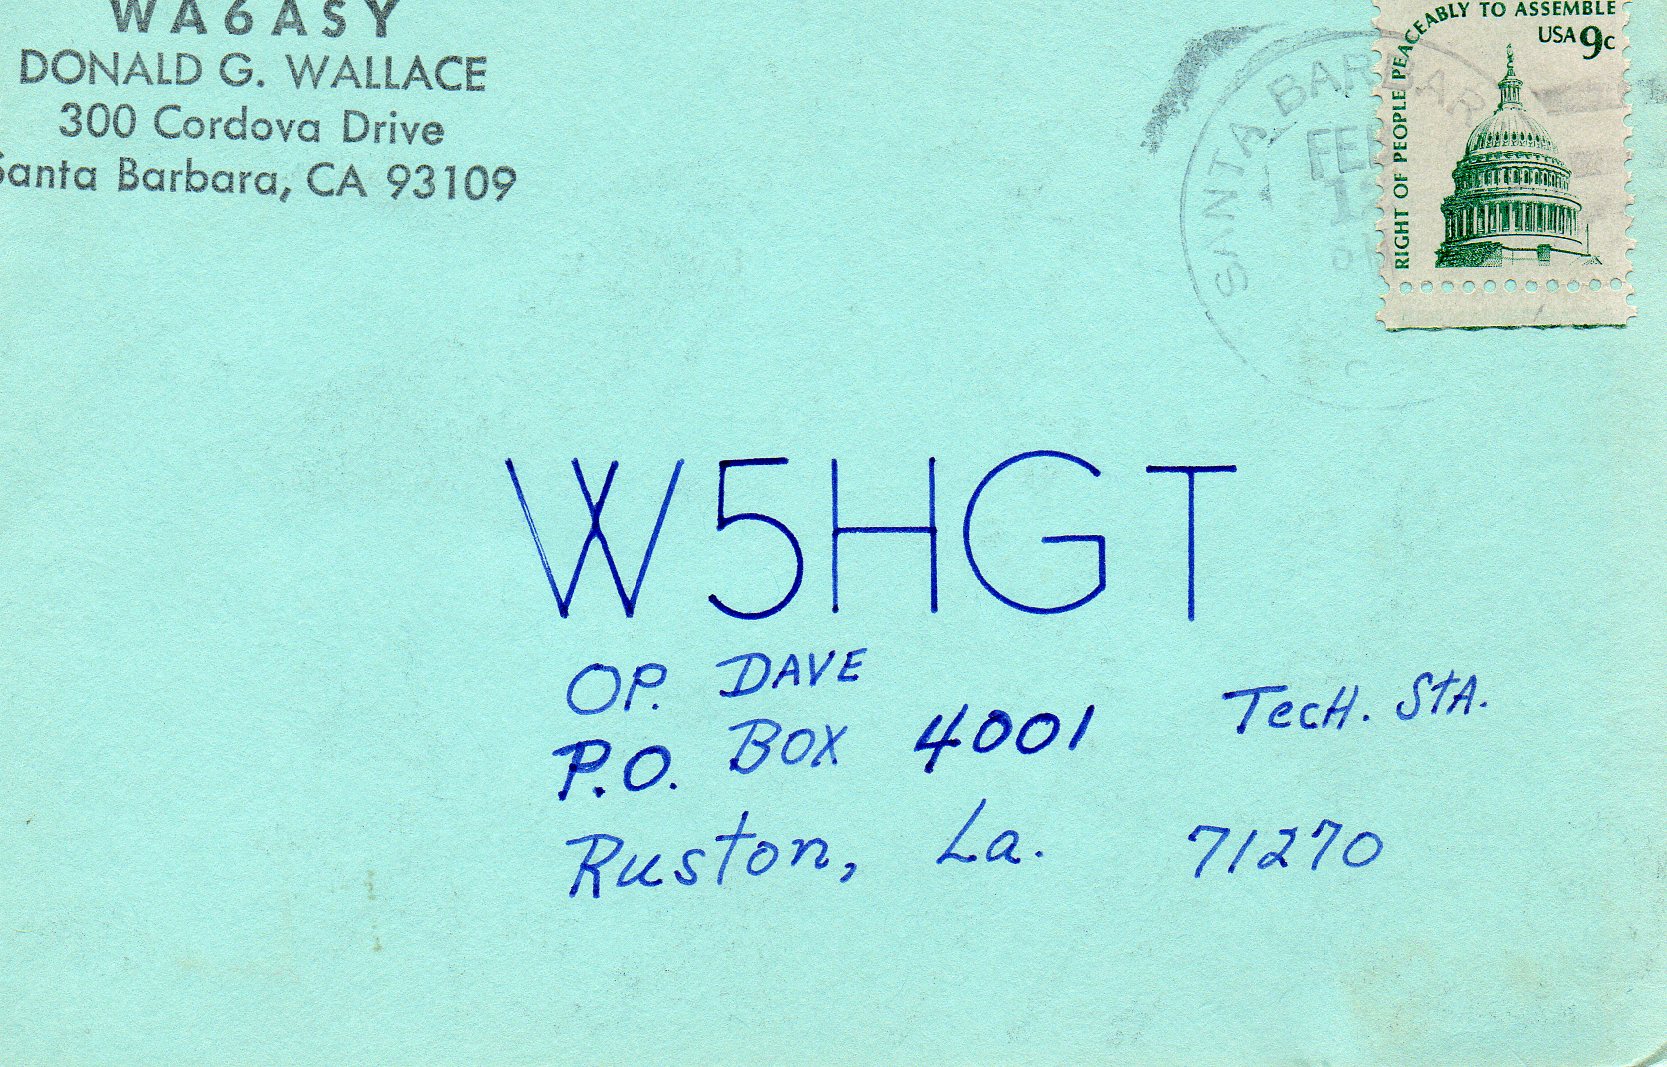 WA6ASY
DONALD G. WALLACE
300 Cordova Drive
Santa Barbara, CA 93109
RIGHT OF PEOPLE PEACEABLY TO ASSEMBLE
USA 9c
SANTA BARBAR
FE
W5HGT
OP. DAVE
P.O. BOX 4001 TecH. StA.
Ruston, La. 71270